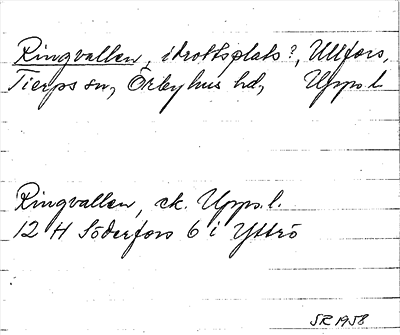 Ringvallen, idrottsplats?, Ullfors,
Tierps sn, Örbyhus hd, Upps.l.
Ringvallen, ek. Upps.l.
12 H Söderfors 6 i Yttrö
SR 1958